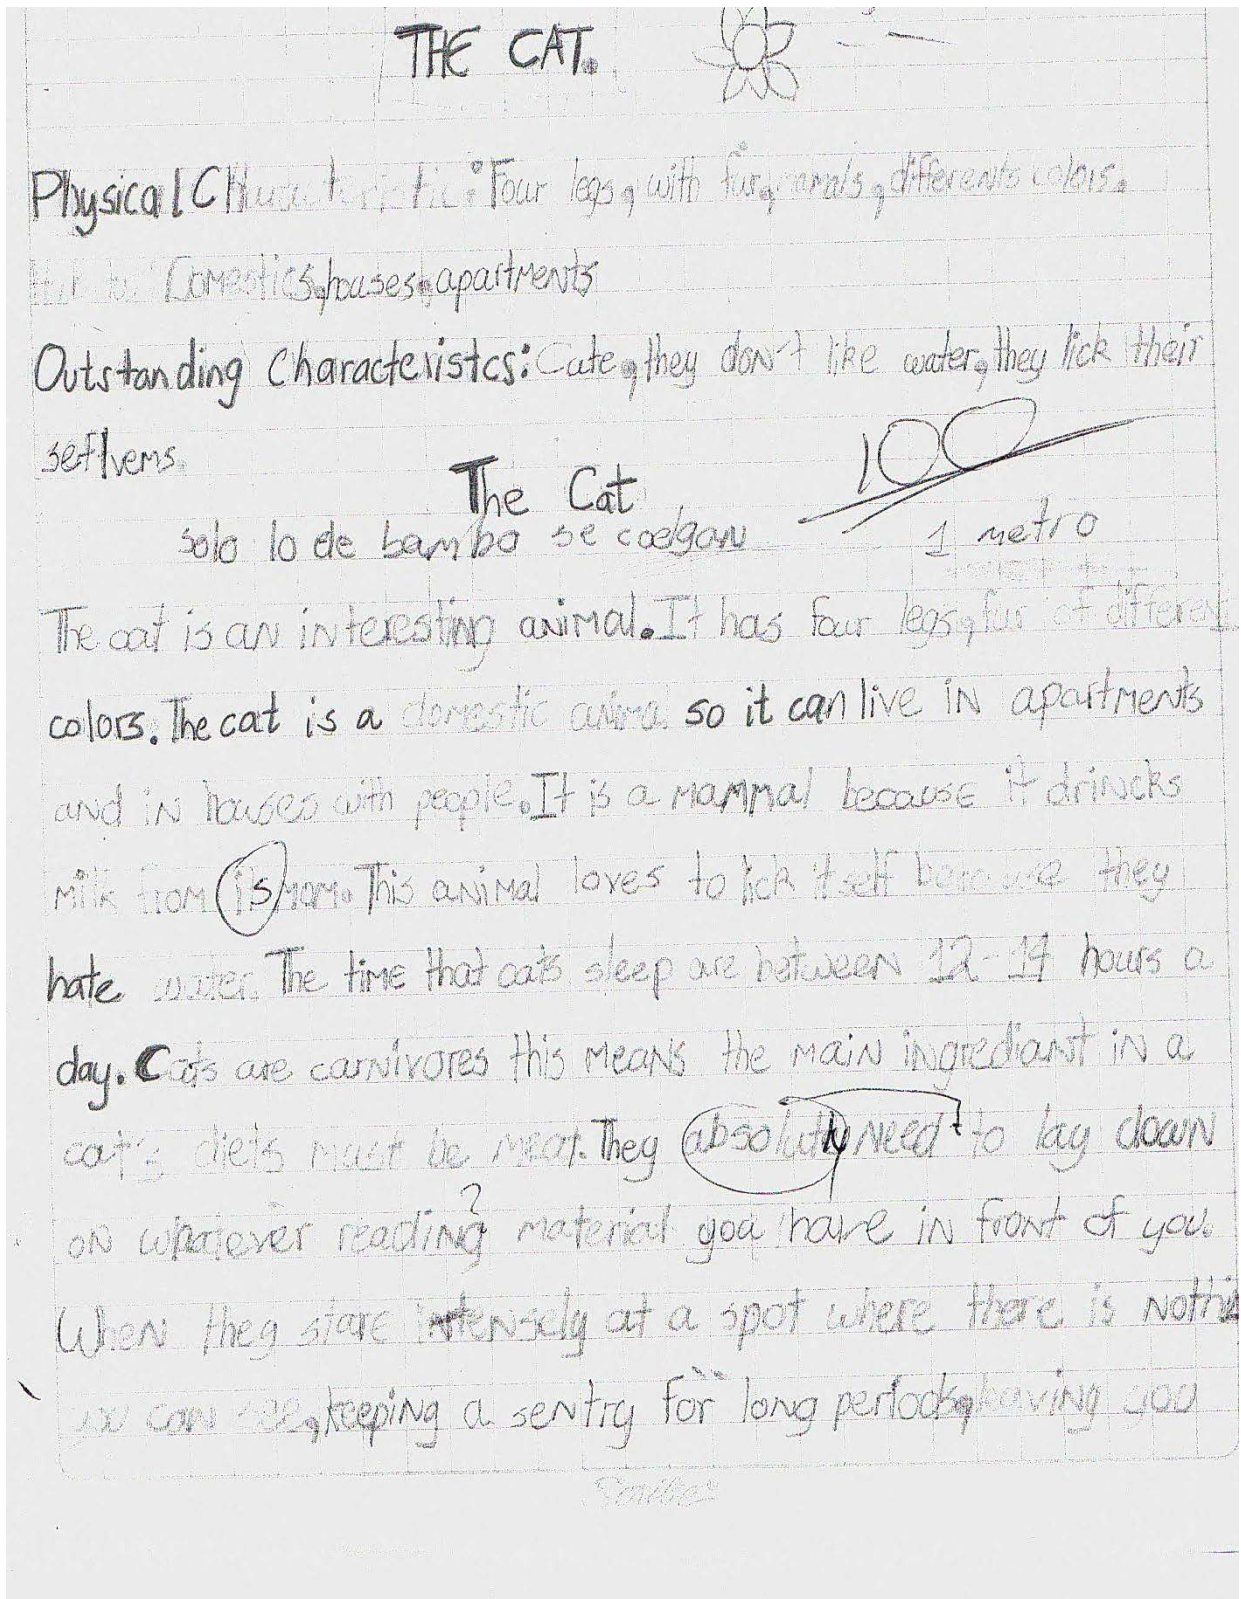 THE CAT.
Physical Characteristic: Four legs, with fur, mamals, differents colors.
Domestics, houses, apartments
Outstanding Characteristcs: Cute, they don't like water, they lick their
seflvems.
100
The Cat
solo lo de bambo se coelgan
1 metro
The cat is an interesting animal. It has four legs, fur of different
colors. The cat is a domestic animal so it can live in apartments
and in houses with people. It is a mammal because it drincks
milk from is mom. This animal loves to lick itself because they
hate water. The time that cats sleep are between 12-14 hours a
day. Cats are carnivores this means the main ingrediant in a
cat's diets must be meat. They absolutly need to lay down
on whatever reading ? material you have in front of you.
When they stare intensely at a spot where there is nothi
you can see, keeping a sentry for long periods, having you
Scribe